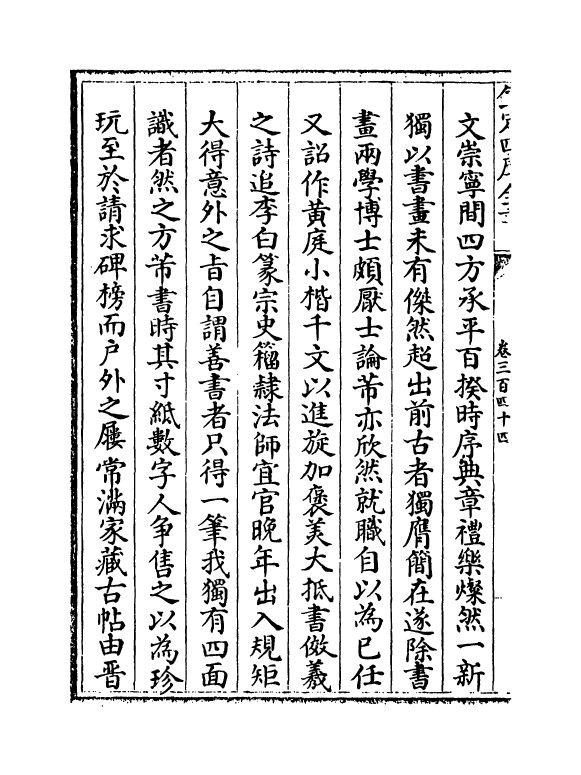 欽定四庫全書
卷三百四十四
文崇寧間四方承平百揆時序典章禮樂燦然一新
獨以書畫未有傑然超出前古者獨膺簡在遂除書
畫兩學博士頗厭士論芾亦欣然就職自以為已任
又詔作黄庭小楷千文以進旋加褒美大抵書倣羲
之詩追李白篆宗史籕隷法師宜官晚年出入規矩
大得意外之㫖自謂善書者只得一筆我獨有四面
識者然之方芾書時其寸紙數字人争售之以為珍
玩至於請求碑榜而户外之屨常滿家藏古帖由晋